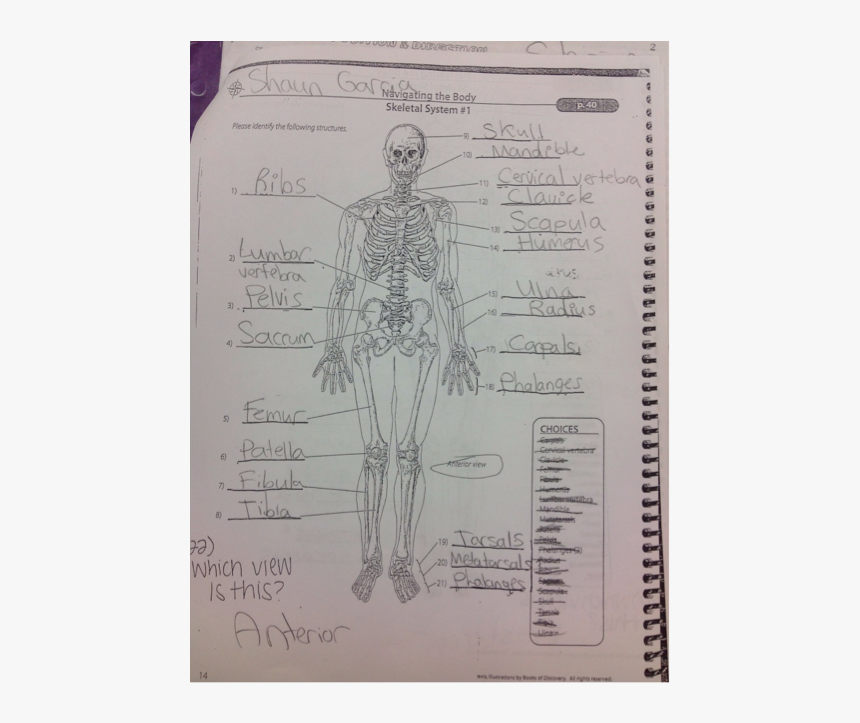 2
Shaun Garcia
Navigating the Body
Skeletal System #1
p. 40
Please identify the following structures.
1) Ribs
2) Lumbar
vertebra
3) Pelvis
4) Sacrum
5) Femur
6) Patella
7) Fibula
8) Tibia
9) Skull
10) Mandible
11) Cervical vertebra
12) Clavicle
13) Scapula
14) Humerus
15) Ulna
16) Radius
17) Carpals
18) Phalanges
Anterior view
19) Tarsals
20) Metatarsals
21) Phalanges
22)
Which view
is this?
Anterior
CHOICES
Carpals
Cervical vertebra
Clavicle
Femur
Humerus
Lumbar vertebra
Mandible
14
Illustrations by Books of Discovery. All rights reserved.